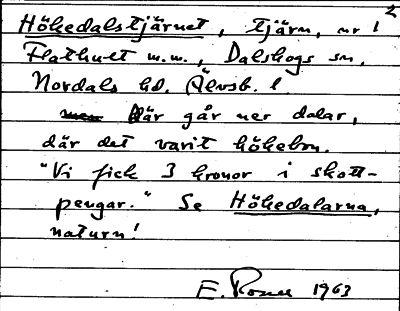 2
Hökedalstjärnet, tjärn, nr 1
Flathult m.m., Dalskogs sn,
Nordals hd. Älvsb. l
Där går ner dalar,
där det varit hökebon.
"Vi fick 3 kronor i skott-
pengar." Se Hökedalarna,
naturn!
E. Rosell 1963